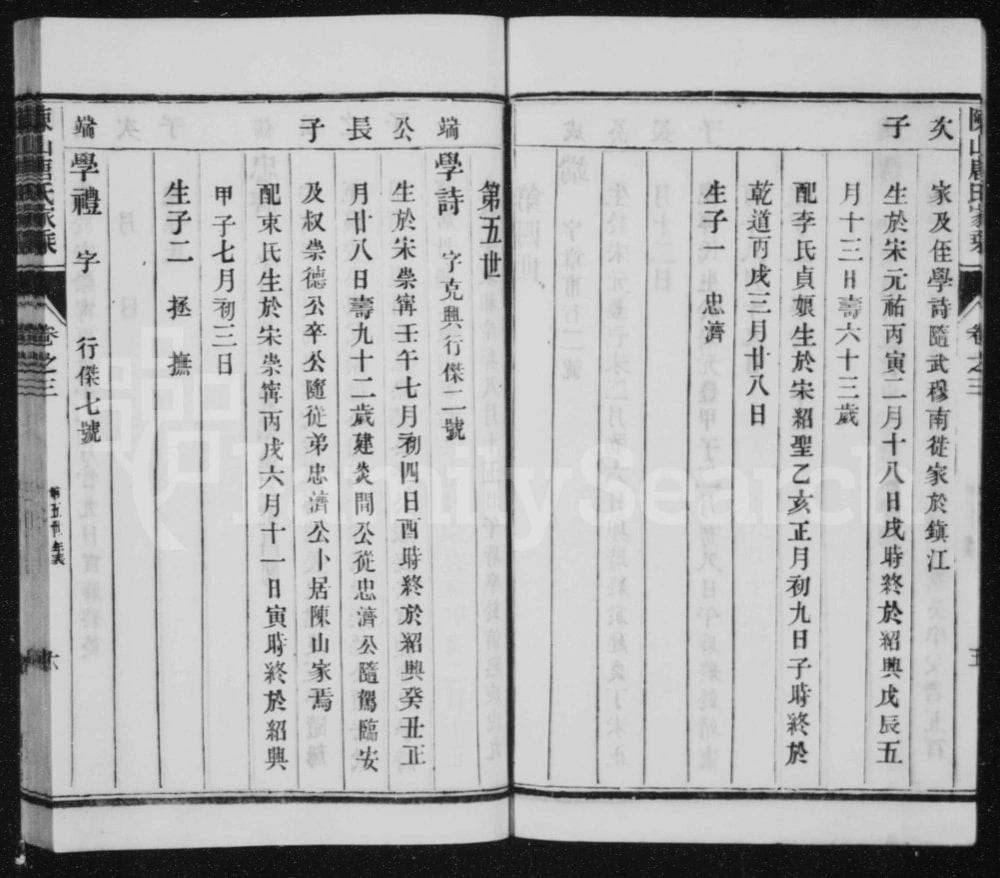 陳山唐氏家乘
卷之三
五
次 家及侄學詩隨武穆南徙家於鎮江
子 生於宋元祐丙寅二月十八日戌時終於紹興戊辰五
月十三日壽六十三歲
配李氏貞娘生於宋紹聖乙亥正月初九日子時終於
乾道丙戌三月廿八日
生子一 忠濟
第五世
端 學詩 字克興行傑二號
公 生於宋崇寧壬午七月初四日酉時終於紹興癸丑正
長 月廿八日壽九十二歲建炎間公從忠濟公隨駕臨安
子 及叔崇德公卒公隨從弟忠濟公卜居陳山家焉
配東氏生於宋崇寧丙戌六月十一日寅時終於紹興
甲子七月初三日
生子二 拯 撫
端 學禮 字 行傑七號
陳山唐氏家乘
卷之三
第五世年表
六
FamilySearch